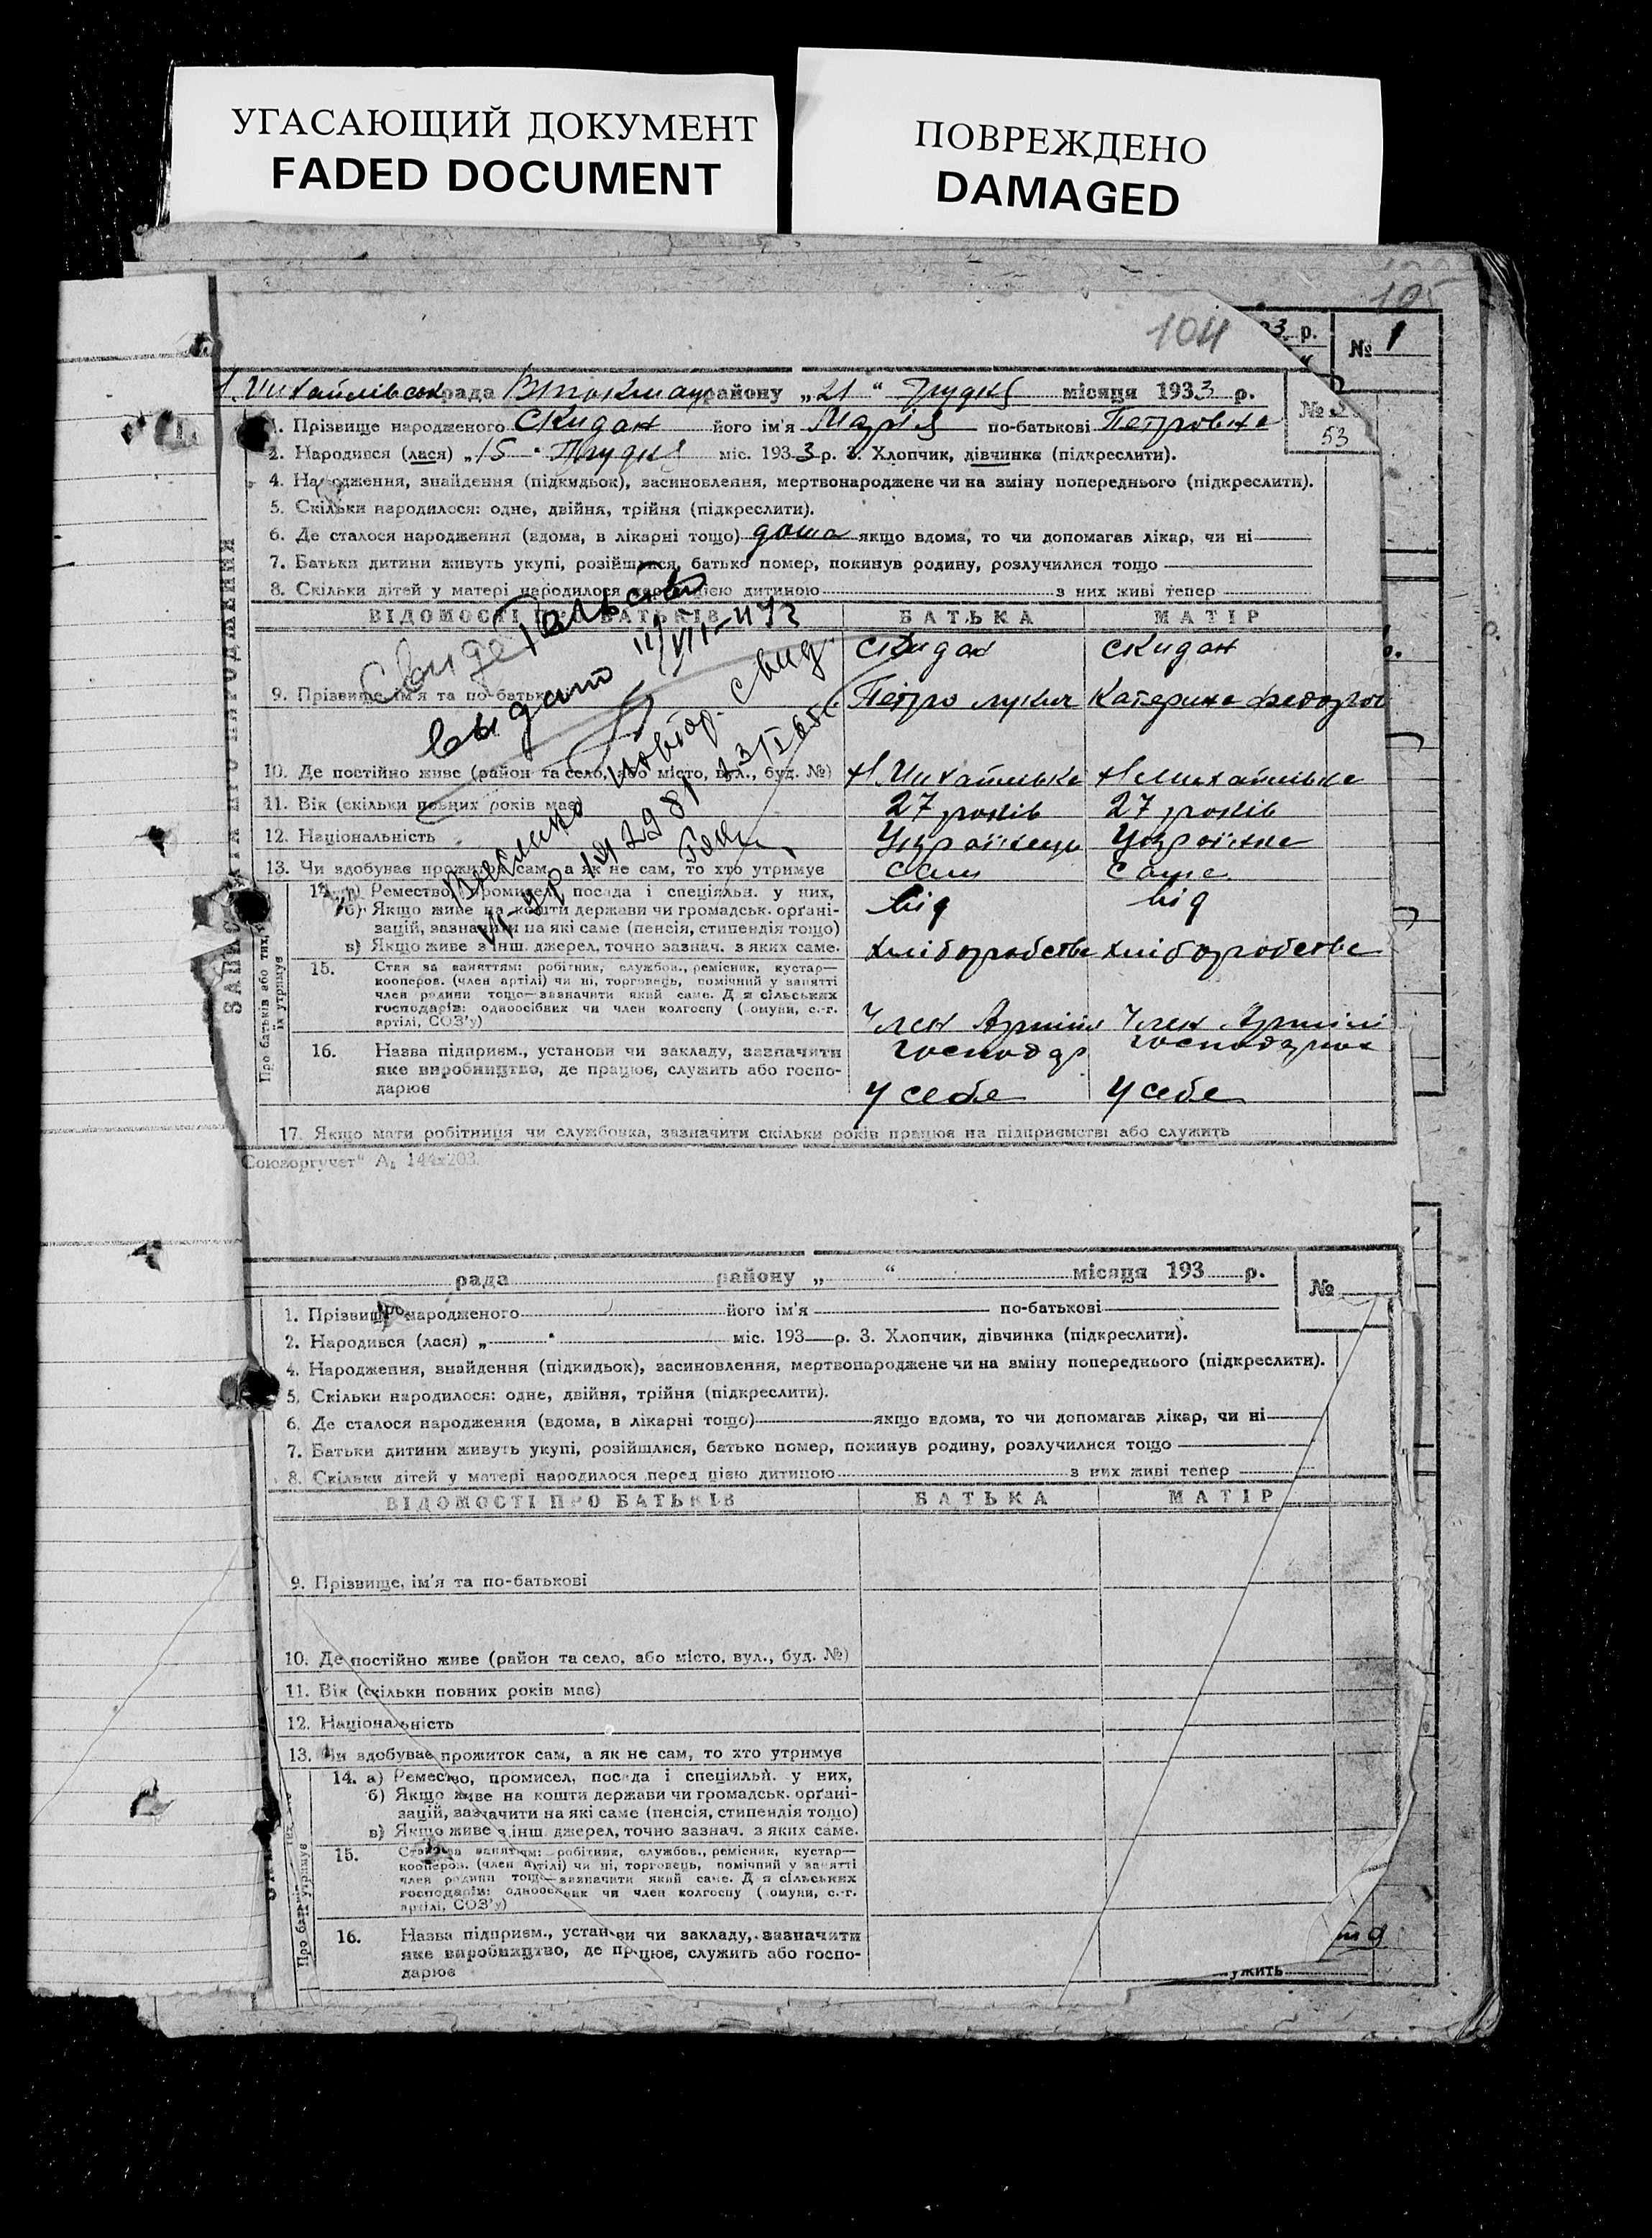 УГАСАЮЩИЙ ДОКУМЕНТ
FADED DOCUMENT
ПОВРЕЖДЕНО
DAMAGED
105
104
3 р.
№ 1
рада В Токмац району „21“ Грудня місяця 1933 р.
№
53
1. Прізвище народженого Скидан його ім'я Марія по-батькові Петровна
2. Народився (лася) „15 Грудня міс. 1933 р. 3. Хлопчик, дівчинка (підкреслити).
4. Народження, знайдення (підкидьок), засиновлення, мертвонароджене чи на зміну попереднього (підкреслити).
5. Скільки народилося: одне, двійня, трійня (підкреслити).
6. Де сталося народження (вдома, в лікарні тощо) дома якщо вдома, то чи допомагав лікар, чи ні
7. Батьки дитини живуть укупі, розійшлися, батько помер, покинув родину, розлучилися тощо
8. Скільки дітей у матері народилося перед цією дитиною з них живі тепер
ВІДОМОСТІ ПРО БАТЬКІВ БАТЬКА МАТІР
Скидан Скидан
9. Прізвище, ім'я та по-батькові Петро Лукич Катерина Федоров
10. Де постійно живе (район та село, або місто, вул., буд. №) Н Михайлівка Н Михайлівка
11. Вік (скільки повних років має) 27 років 27 років
12. Національність Українець Українка
13. Чи здобуває прожиток сам, а як не сам, то хто утримує сам сама
14. а) Ремество, промисел, посада і спеціяльн. у них,
б) Якщо живе на кошти держави чи громадськ. орґані-
зацій, зазначити на які саме (пенсія, стипендія тощо)
в) Якщо живе з інш. джерел, точно зазнач. з яких саме.
від від
хліборобства хліборобства
15. Стан за заняттям: робітник, службов., ремісник, кустар—
кооперов. (член артілі) чи ні, торговець, помічний у занятті
член родини тощо—зазначити який саме. Для сільських
господарів: одноосібник чи член колгоспу (комуни, с.-г.
артілі, СОЗ'у)
Член Артілі Член Артілі
господар господарка
16. Назва підприєм., установи чи закладу, зазначити
яке виробництво, де працює, служить або госпо-
дарює
у себе у себе
17. Якщо мати робітниця чи службовка, зазначити скільки років працює на підприємстві або служить
Союзоргучет“ А₅ 144х203.
ЗАПИС АКТА ПРО НАРОДЖЕННЯ
Про батьків або тих, хто
їх утримує
Свидетельство
выдано
Выслано повтор. свид
23/I 65г
рада району „ “ місяця 193 р.
№
1. Прізвище народженого його ім'я по-батькові
2. Народився (лася) „ міс. 193 р. 3. Хлопчик, дівчинка (підкреслити).
4. Народження, знайдення (підкидьок), засиновлення, мертвонароджене чи на зміну попереднього (підкреслити).
5. Скільки народилося: одне, двійня, трійня (підкреслити).
6. Де сталося народження (вдома, в лікарні тощо) якщо вдома, то чи допомагав лікар, чи ні
7. Батьки дитини живуть укупі, розійшлися, батько помер, покинув родину, розлучилися тощо
8. Скільки дітей у матері народилося перед цією дитиною з них живі тепер
ВІДОМОСТІ ПРО БАТЬКІВ БАТЬКА МАТІР
9. Прізвище, ім'я та по-батькові
10. Де постійно живе (район та село, або місто, вул., буд. №)
11. Вік (скільки повних років має)
12. Національність
13. Чи здобуває прожиток сам, а як не сам, то хто утримує
14. а) Ремество, промисел, посада і спеціяльн. у них,
б) Якщо живе на кошти держави чи громадськ. орґані-
зацій, зазначити на які саме (пенсія, стипендія тощо)
в) Якщо живе з інш. джерел, точно зазнач. з яких саме.
15. Стан за заняттям: робітник, службов., ремісник, кустар—
кооперов. (член артілі) чи ні, торговець, помічний у занятті
член родини тощо—зазначити який саме. Для сільських
господарів: одноосібник чи член колгоспу (комуни, с.-г.
артілі, СОЗ'у)
16. Назва підприєм., установи чи закладу, зазначити
яке виробництво, де працює, служить або госпо-
дарює
служить